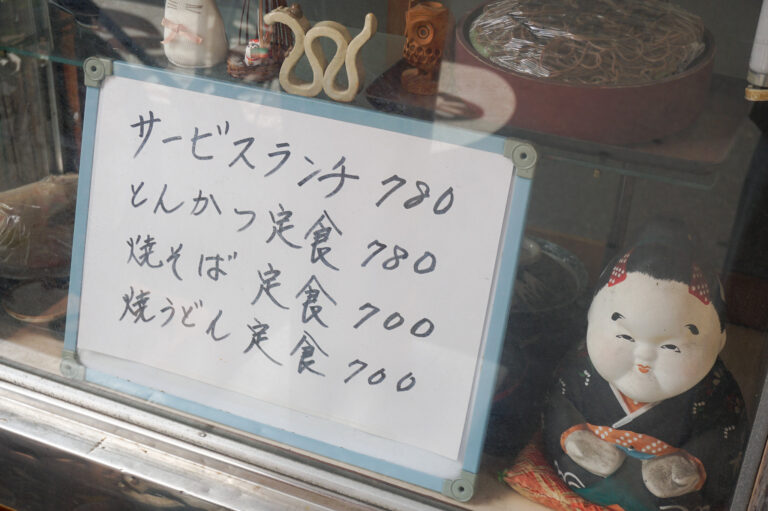 サービスランチ 780
とんかつ定食 780
焼そば 定食 700
焼うどん 定食 700